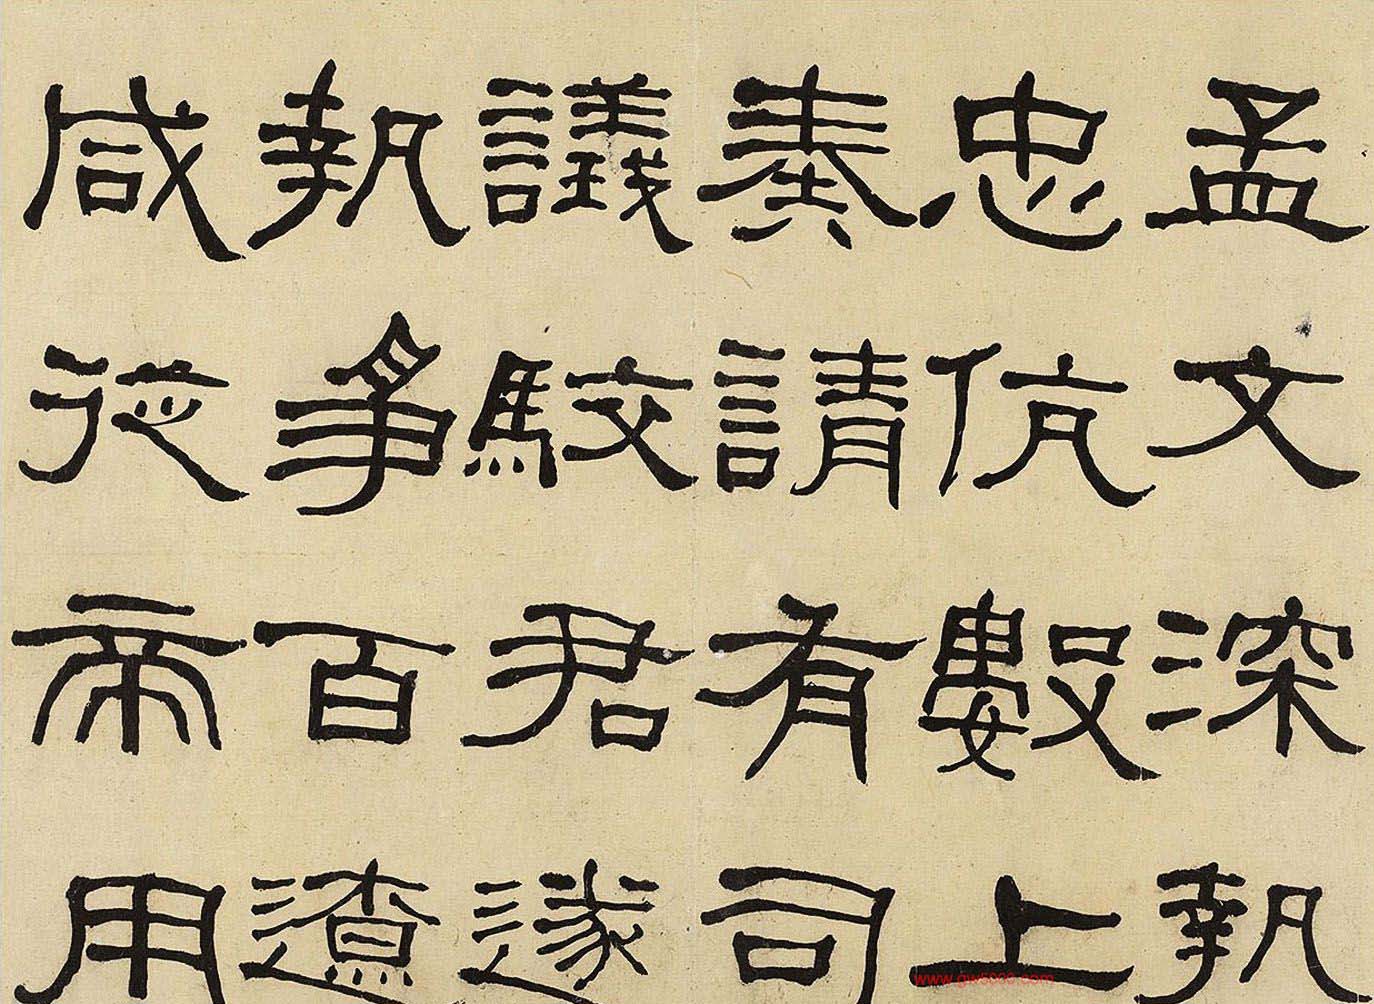 孟文深執
忠伉數上
奏請有司
議駮君遂
執爭百遼
咸從帝用
www.gw5000.com